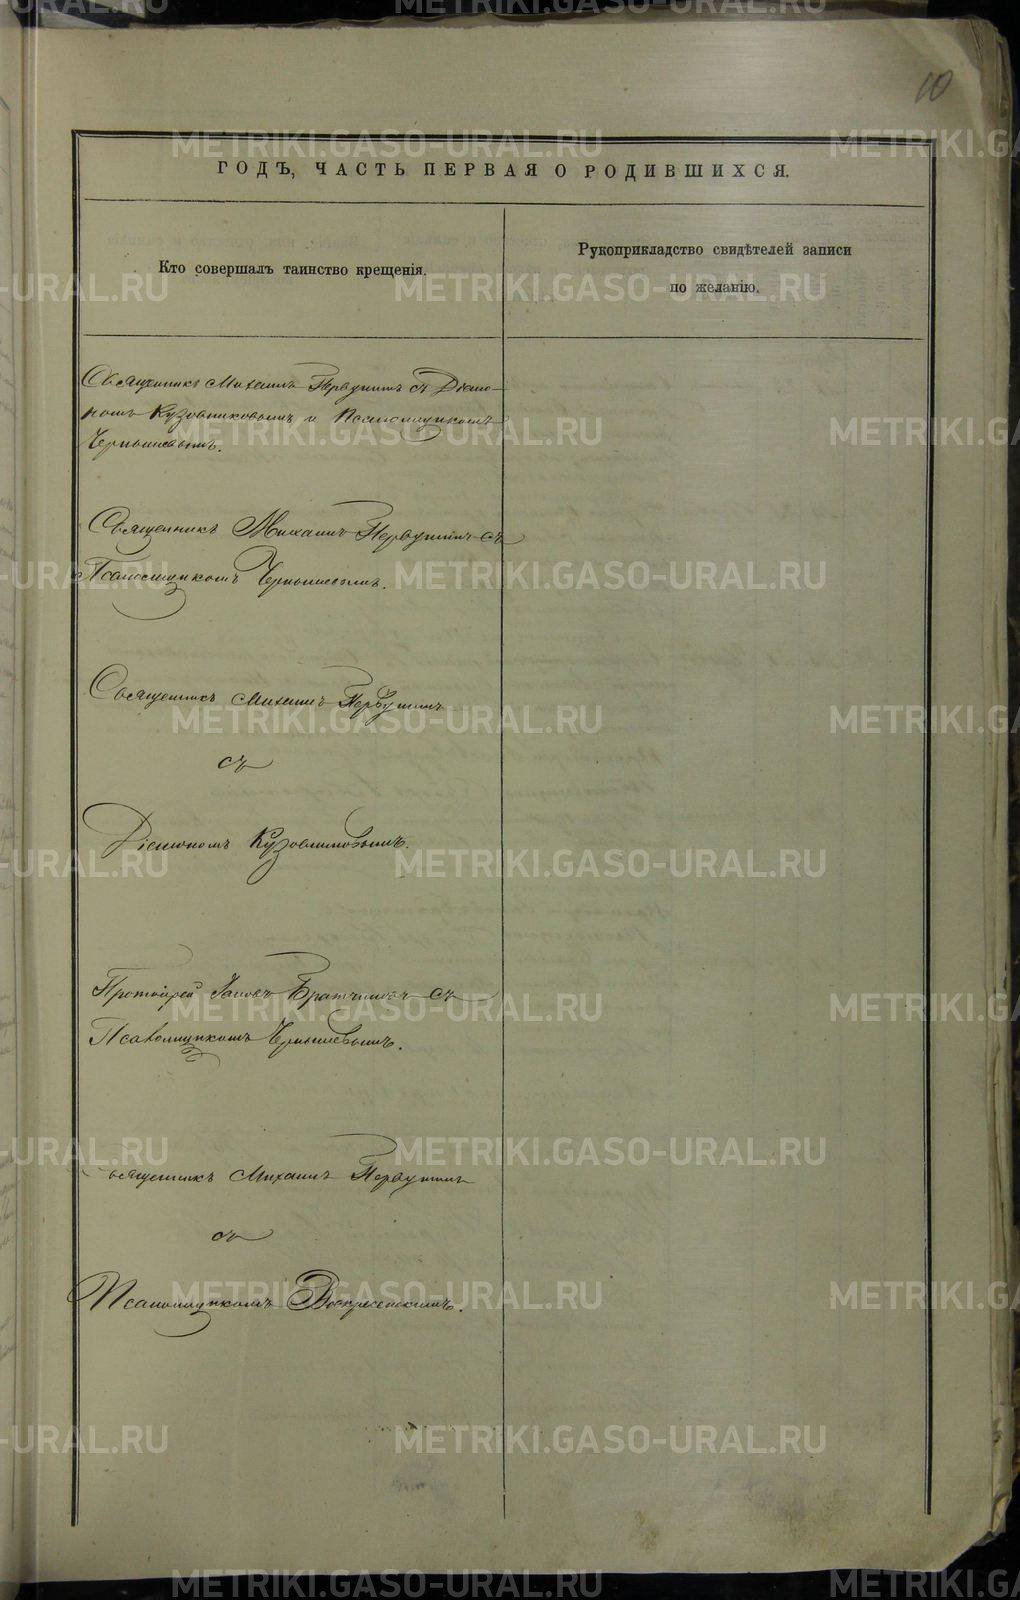 10
ГОДЪ, ЧАСТЬ ПЕРВАЯ О РОДИВШИХСЯ.
Кто совершалъ таинство крещенія.
Рукоприкладство свидѣтелей записи
по желанію.
Священникъ Михаилъ Первушинъ съ Діако-
номъ Кузовниковымъ и Псаломщикомъ
Чернышевымъ.
Священникъ Михаилъ Первушинъ съ
Псаломщикомъ Чернышевымъ.
Священникъ Михаилъ Первушинъ
съ
Діакономъ Кузовниковымъ.
Протоіерей Іаковъ Братчиковъ съ
Псаломщикомъ Чернышевымъ.
Священникъ Михаилъ Первушинъ
съ
Псаломщикомъ Воскресенскимъ.
METRIKI.GASO-URAL.RU